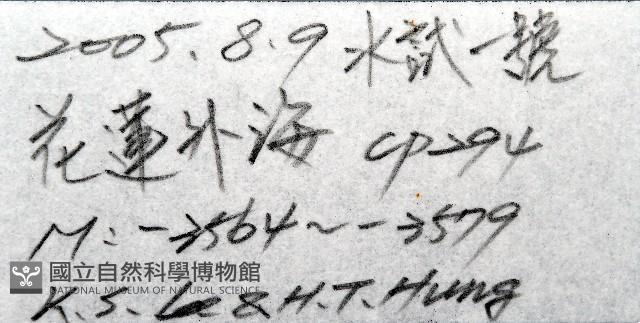 2005. 8. 9 水試一號
花蓮外海 CP294
M: -3564~-3579
國立自然科學博物館
NATIONAL MUSEUM OF NATURAL SCIENCE
K. S. Lee & H. T. Hung